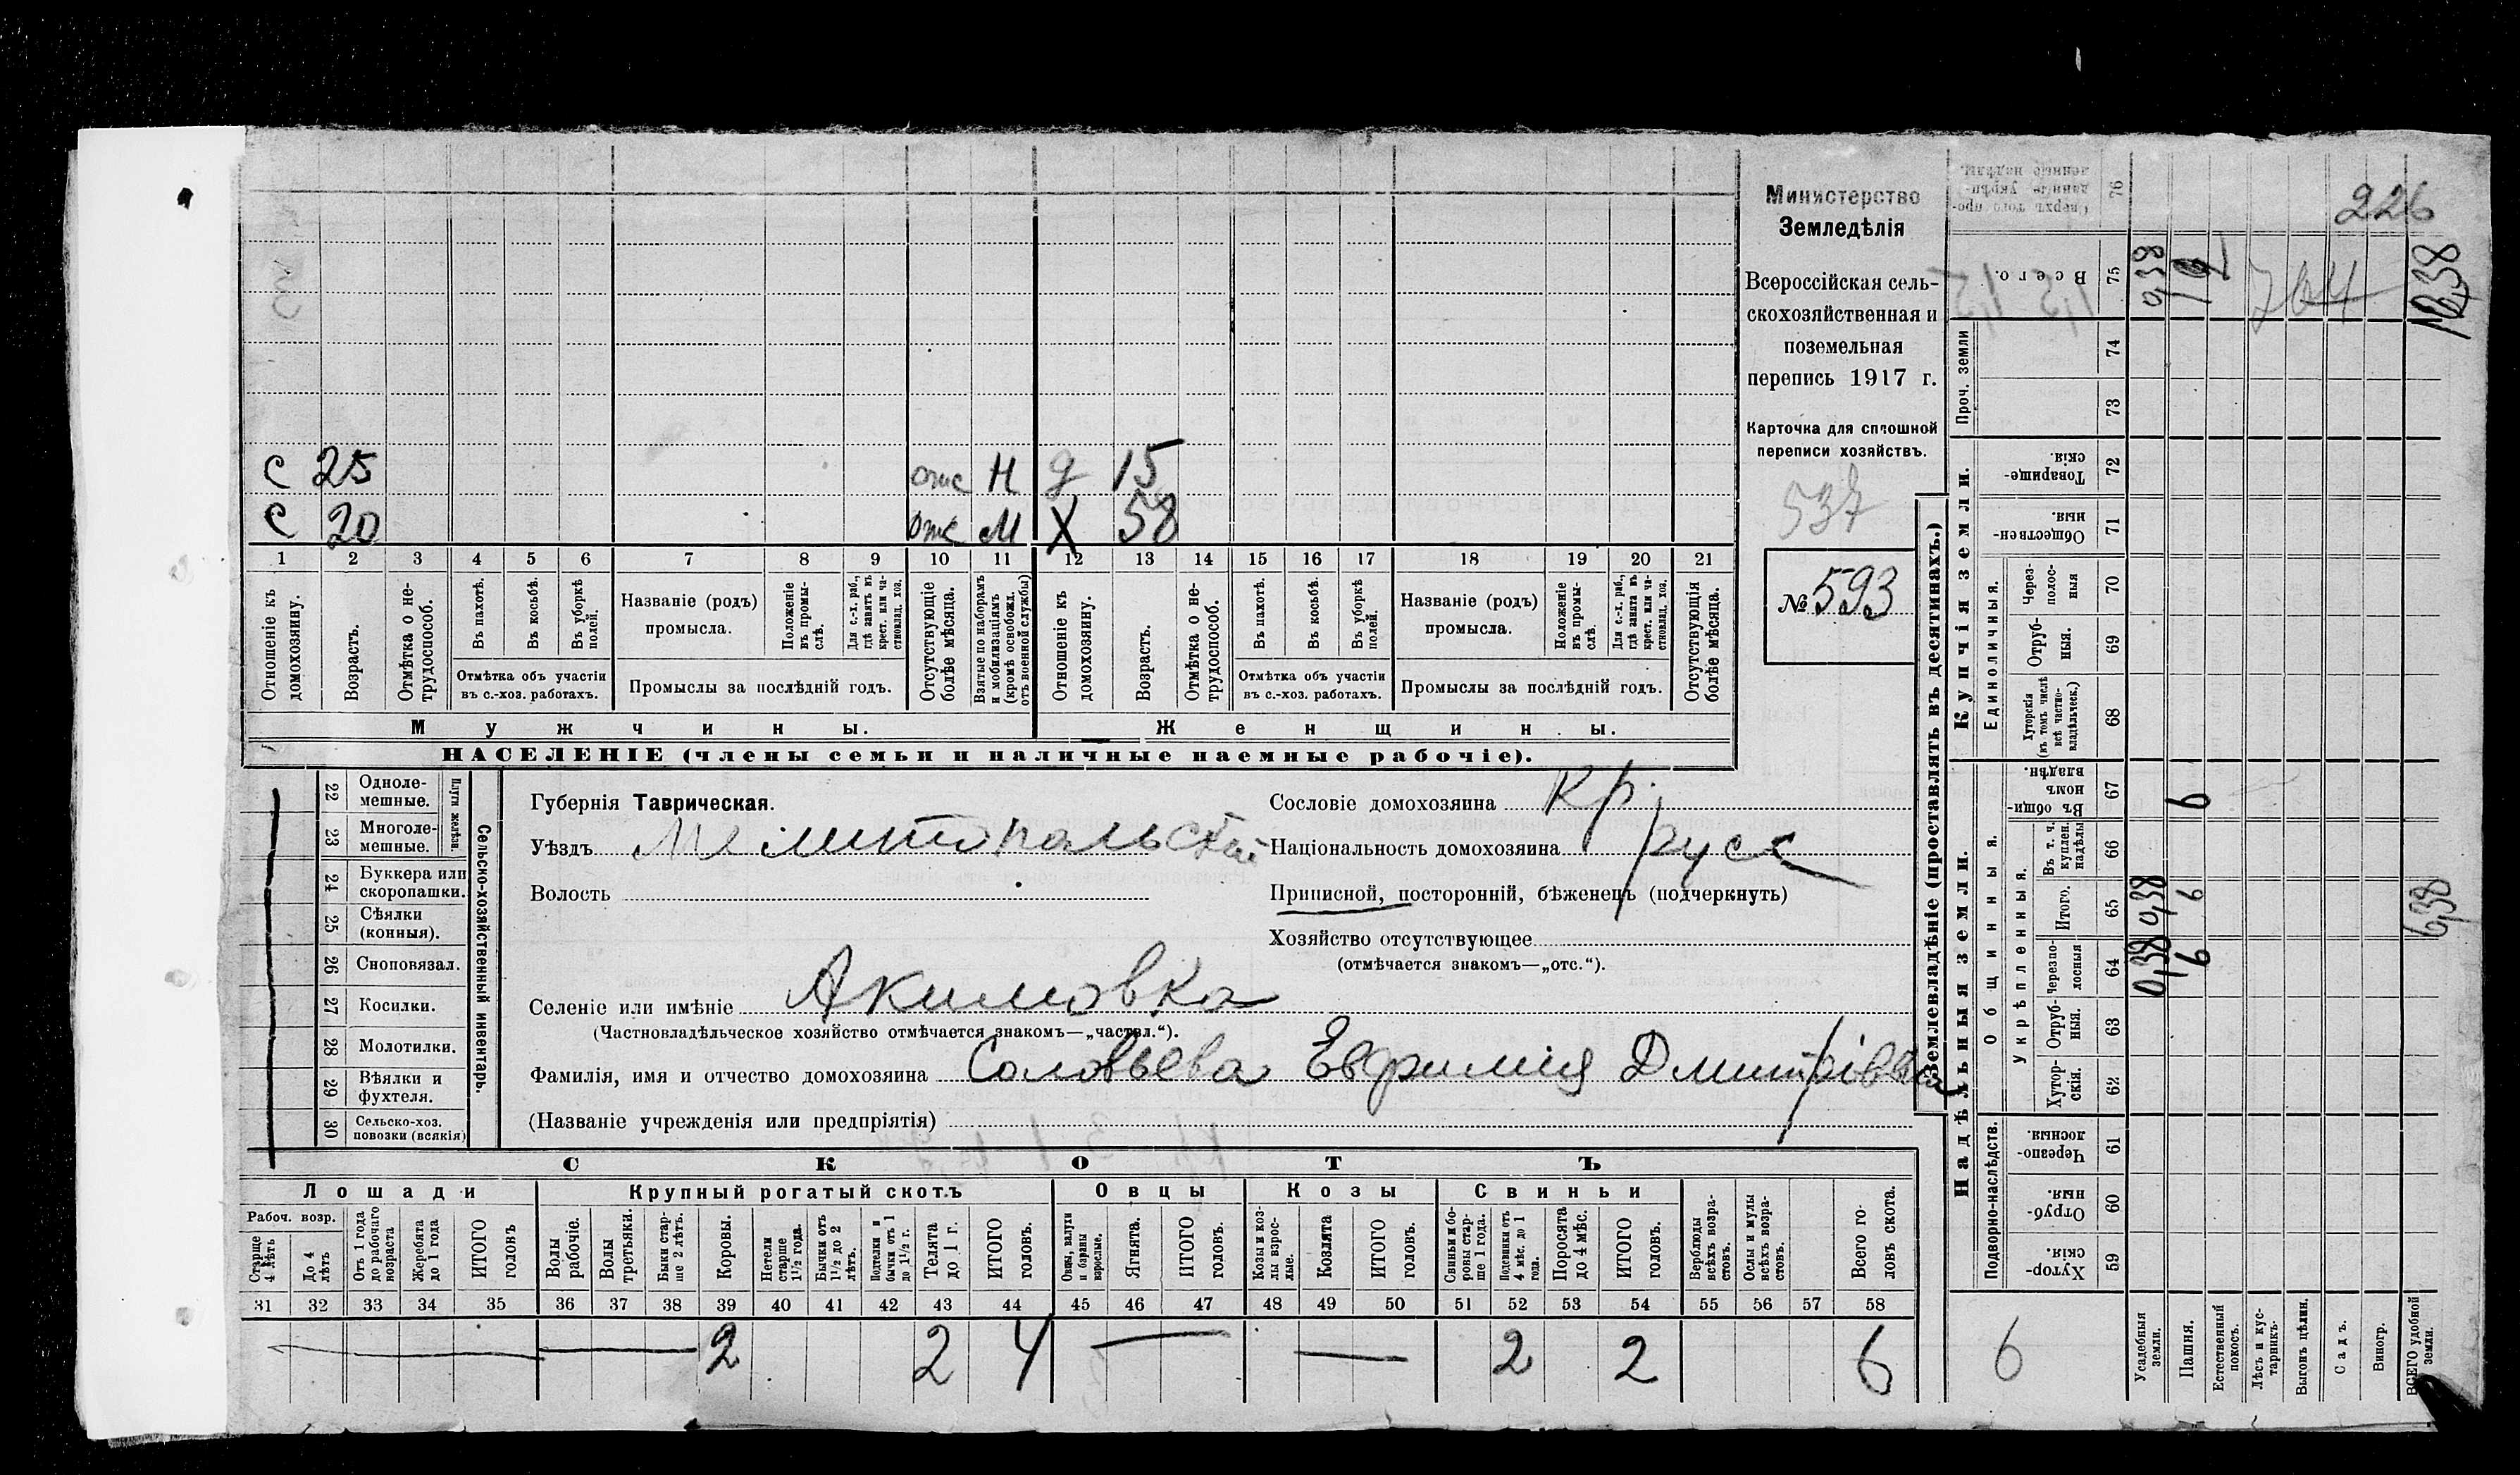 226
Министерство
Земледѣлія
Всероссійская сель-
скохозяйственная и
поземельная
перепись 1917 г.
Карточка для сплошной
переписи хозяйствъ.
537
№ 593
с 25 отс Н д 15
с 20 отс М Х 58
1 2 3 4 5 6 7 8 9 10 11 12 13 14 15 16 17 18 19 20 21
Отношеніе къ домохозяину.
Возрастъ.
Отмѣтка о не-трудоспособ.
Въ пахотѣ.
Въ косьбѣ.
Въ уборкѣ полей.
Отмѣтка объ участіи
въ с.-хоз. работахъ.
Названіе (родъ)
промысла.
Положеніе въ промы-слѣ.
Для с.-х. раб., гдѣ занятъ въ крест. или ча-стновлад. хоз.
Промыслы за послѣдній годъ.
Отсутствующіе болѣе мѣсяца.
Взятые по наборамъ и мобилизаціямъ (кромѣ освобожд. отъ военной службы)
Отношеніе къ домохозяину.
Возрастъ.
Отмѣтка о не-трудоспособ.
Въ пахотѣ.
Въ косьбѣ.
Въ уборкѣ полей.
Отмѣтка объ участіи
въ с.-хоз. работахъ.
Названіе (родъ)
промысла.
Положеніе въ промы-слѣ.
Для с.-х. раб., гдѣ занята въ крест. или ча-стновлад. хоз.
Промыслы за послѣдній годъ.
Отсутствующія болѣе мѣсяца.
Мужчины. Женщины.
НАСЕЛЕНІЕ (члены семьи и наличные наемные рабочіе).
22 Одноле-мешные.
23 Многоле-мешные.
Плуги желѣзн.
24 Буккера или скоропашки.
25 Сѣялки (конныя).
26 Сноповязал.
27 Косилки.
28 Молотилки.
29 Вѣялки и фухтеля.
30 Сельско-хоз. повозки (всякія)
Сельско-хозяйственный инвентарь.
Губернія Таврическая.
Уѣздъ Мелитопольскій
Волость
Сословіе домохозяина кр.
Національность домохозяина русс
Приписной, посторонній, бѣженецъ (подчеркнуть)
Хозяйство отсутствующее
(отмѣчается знакомъ—„отс.“).
Селеніе или имѣніе Акимовка
(Частновладѣльческое хозяйство отмѣчается знакомъ—„частвл.“).
Фамилія, имя и отчество домохозяина Соловьева Евфимия Дмитрівна
(Названіе учрежденія или предпріятія)
СКОТЪ
Лошади Крупный рогатый скотъ Овцы Козы Свиньи
Рабоч. возр.
Старше 4 лѣтъ
До 4 лѣтъ
Отъ 1 года до рабочаго возраста
Жеребята до 1 года
ИТОГО головъ
Волы рабочіе.
Волы третьяки.
Быки стар-ше 2 лѣтъ.
Коровы.
Нетели старше 1½ года.
Бычки отъ 1½ до 2 лѣтъ.
Подтелки и бычки отъ 1 до 1½ г.
Телята до 1 г.
ИТОГО головъ.
Овцы, валухи и бараны взрослые.
Ягнята.
ИТОГО головъ.
Козы и коз-лы взрос-лые.
Козлята
ИТОГО головъ.
Свиньи и бо-ровы стар-ше 1 года.
Подсвинки отъ 4 мѣс. до 1 года.
Поросята до 4 мѣс.
ИТОГО головъ.
Верблюды всѣхъ возра-стовъ.
Ослы и мулы всѣхъ возра-стовъ.
Всего го-ловъ скота.
31 32 33 34 35 36 37 38 39 40 41 42 43 44 45 46 47 48 49 50 51 52 53 54 55 56 57 58
— — 2 2 4 — — 2 2 6
Землевладѣніе (проставлять въ десятинахъ.)
Надѣльныя земли. Купчія земли. Проч. земли
Подворно-наслѣдств.
Общинныя.
Укрѣпленныя.
Единоличныя.
59 Хутор-скія.
60 Отруб-ныя.
61 Черезпо-лосныя.
62 Хутор-скія.
63 Отруб-ныя.
64 Черезпо-лосныя 0,38 6
65 Итого. 0,38 6 6,38
66 Въ т. ч. куплен. надѣлы
67 Въ общи-номъ владѣн. 6
68 Хуторскія (въ томъ числѣ всѣ частно-владѣльческ.)
69 Отруб-ныя.
70 Через-полос-ныя
71 Обществен-ныя.
72 Товарище-скія.
73
74
75 Всего. 0,38
76 Сверхъ того про-данные укрѣп-ленные надѣлы.
704
6
Усадебныя земли.
Пашня.
Естественный покосъ.
Лѣсъ и кус-тарникъ.
Выгонъ цѣлин.
Садъ.
Виногр.
ВСЕГО удобной земли.